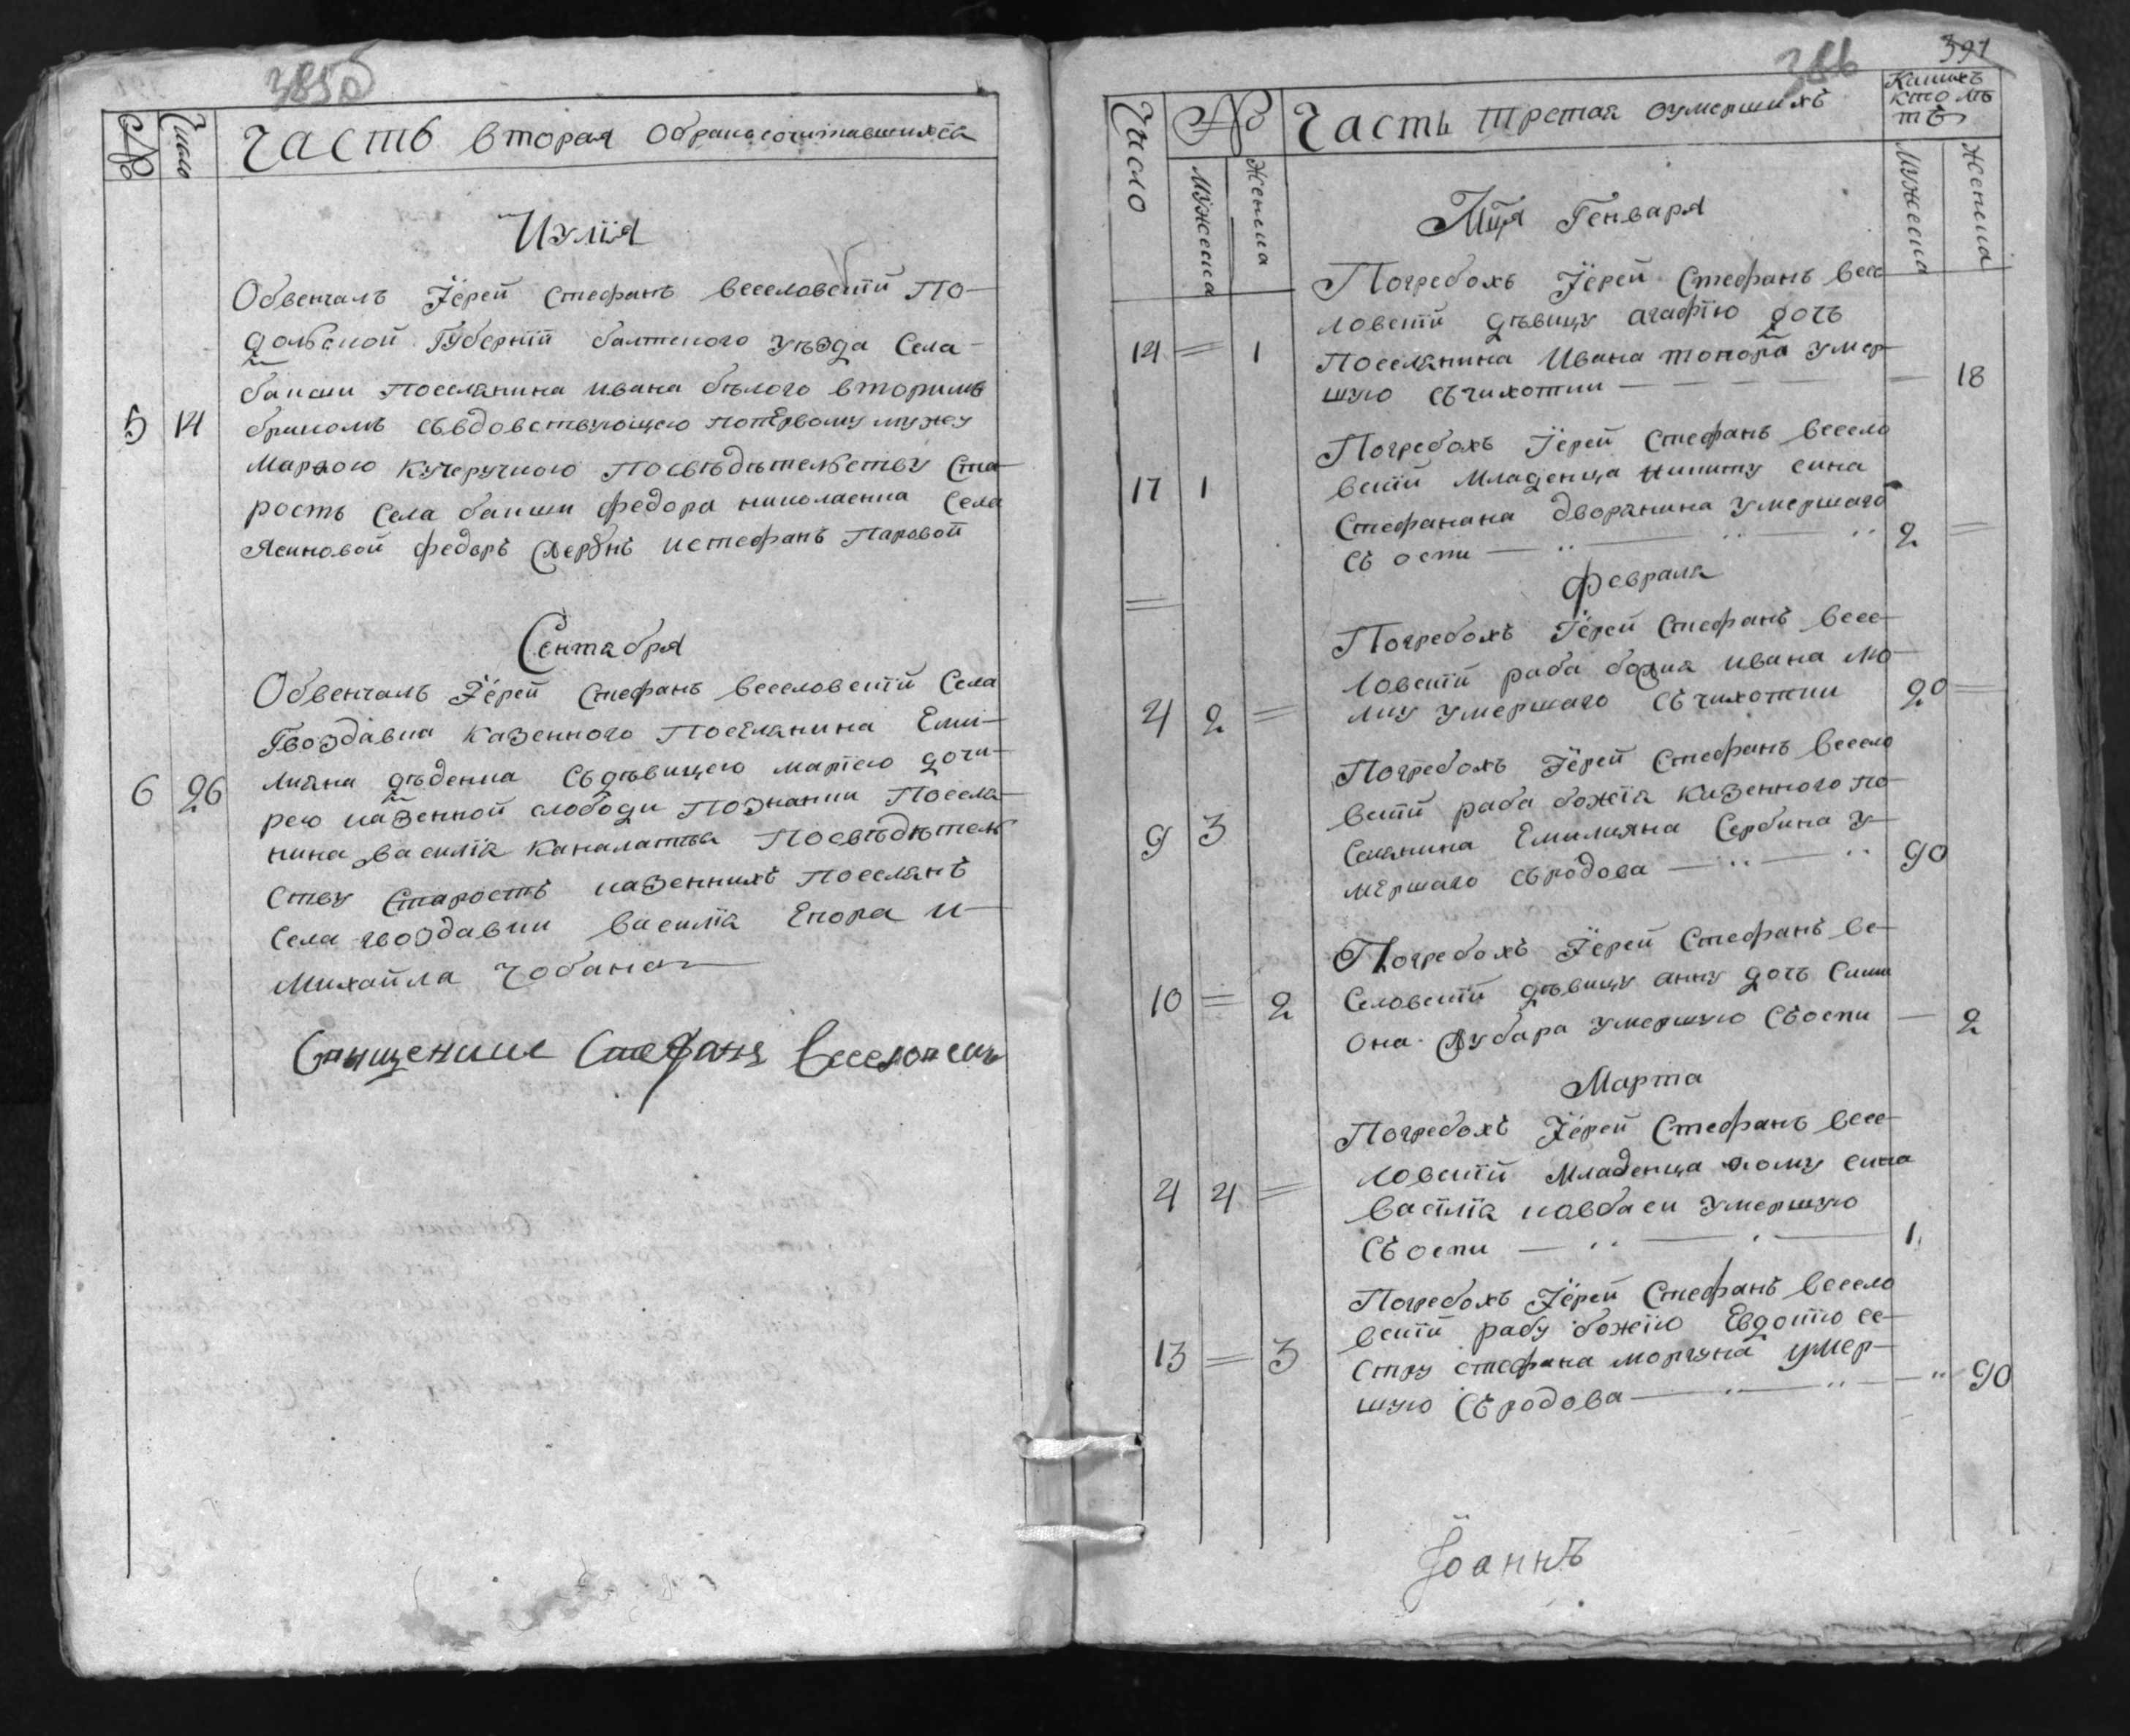 385об
№ Число Часть вторая обракосочитавшихся
Иулїя
Обвенчалъ Їерей Стефанъ Веселовскїй По-
дольской Губернїи балтского уѣзда Села
бански Поселянина ивана бѣлого вторимъ
5 14 бракомъ съвдовствующею поперьвому мужу
Марѳою Кучеручкою Посвѣдѣтельству Ста-
рость Села бански федора николаенка Села
Ясиновой федоръ Сербѣнъ истефанъ Паровой
Сентабря
Обвенчалъ Їерей Стефанъ Веселовскїй Села
Гвоздавки Казенного Поселянина Еми-
6 26 лияна дѣденка Съдѣвицею Марїею дочи-
рею казенной слободи Познанки Поселя-
нина Василїя Каналатїя Посвѣдѣтель
Ству Старостъ казеннихъ поселянъ
Села гвоздавки Василїя Екора и-
Михайла Чобана
Священникъ Стефанъ Веселовски
386
391
Число № Часть Третая оумершихъ Каликъ кто лѣтъ
Мужеска Женска Мужеска Женска
Мця Генваря
Погребохъ Їерей Стефанъ Весе
ловскїй дѣвицу агафїю дочъ
14 = 1 Поселянина Ивана топора умер-
шую Съчихотки — 18
Погребохъ Їерей Стефанъ Весело
17 1 вскїй Младенца никиту сина
Стефанана дворянина умершаго
Съ оспи 2 =
февраля
Погребохъ Їерей Стефанъ Весе-
ловскїй раба божия ивана мо-
4 2 = лку умершаго Съчихотки 20 =
Погребохъ Їерей Стефанъ Весело
вскїй раба божїя Казенного по-
9 3 Селянина Емилияна Сербина у-
мершаго Съродова 90
Погребохъ Їерей Стефанъ Ве-
10 = 2 Селовскїй дѣвицу анну дочъ Сими
она Дубара умершую Съоспи — 2
Марта
Погребохъ Їерей Стефанъ Весе-
ловскїй Младенца хому сина
4 4 = Василїя ковбаси умершую
Съоспи 1
Погребохъ Їерей Стефанъ Весело
вскїй рабу божїю Евдокїю се-
13 = 3 Стру стефана моргуна умер-
шую Съродова 90
Їоаннъ